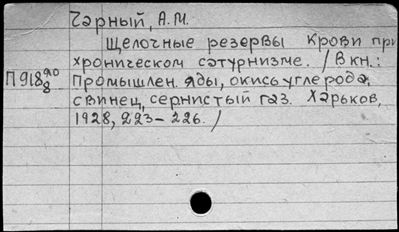 Чарный, А.М.
Щелочные резервы крови при
хроническом сатурнизме. / В кн.:
П918 Промышлен. яды, окись углерода,
свинец, сернистый газ. Харьков,
1928, 223-226. /